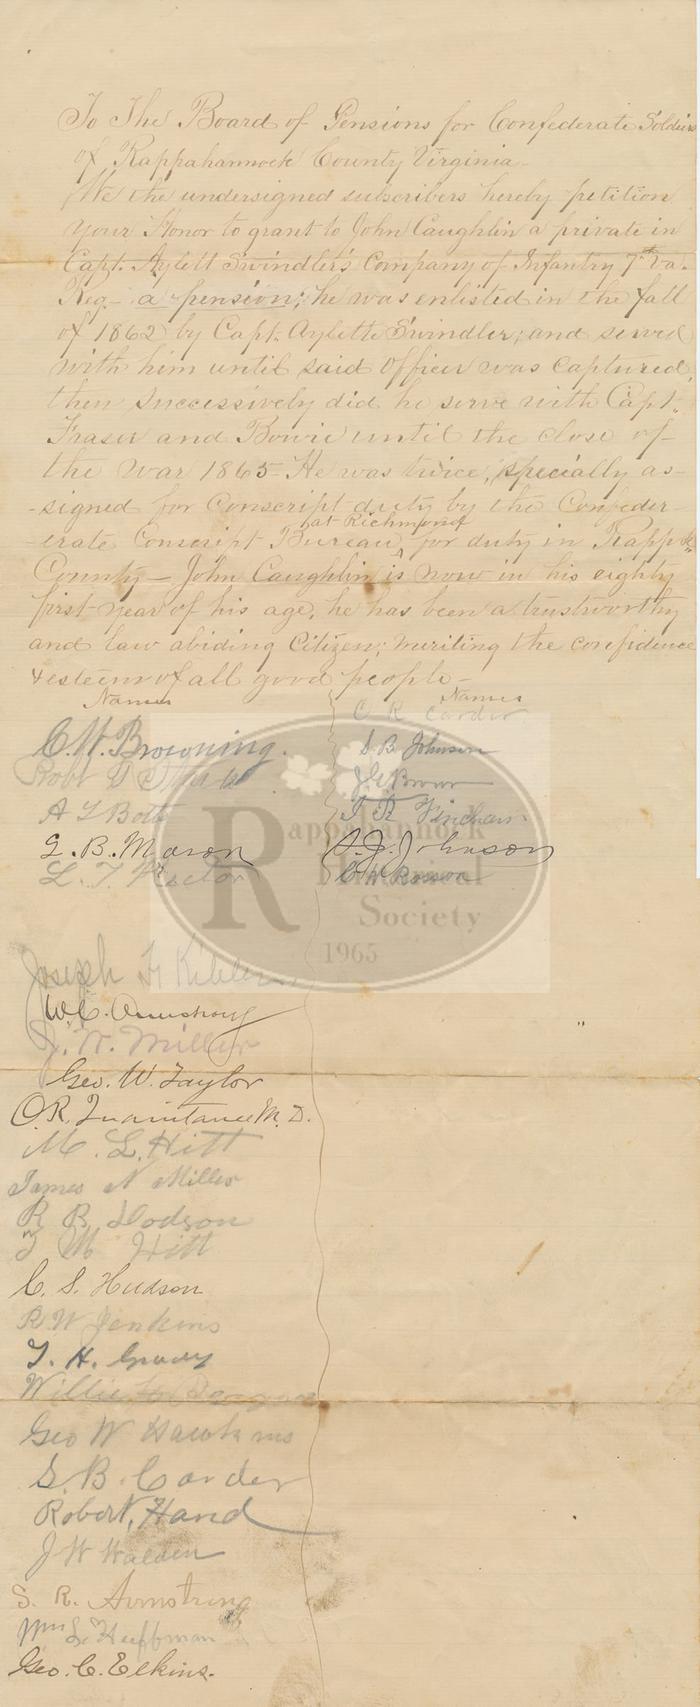 To The Board of Pensions for Confederate Soldiers
of Rappahannock County Virginia -
We the undersigned subscribers hereby petition
your Honor to grant to John Caughlin a private in
Capt. Aylett Swindler's Company of Infantry 7th Va.
Reg - a pension; he was enlisted in the fall
of 1862 by Capt. Aylette Swindler; and served
with him until said Officer was captured,
then successively did he serve with Capt.
Fraser and Bowie until the close of
the war 1865 - He was twice, specially as-
-signed for Conscript duty by the Confed-
-erate Conscript Bureau at Richmond for duty in Rappk
County - John Caughlin is now in his eighty
first year of his age, he has been a trustworthy
and law abiding Citizen; meriting the confidence
& esteem of all good people -
Names
C. W. Browning.
A L Bott
G. B. Mason
L. T. Rector
Joseph F
W. C. Armstrong
J. W. Miller
Geo. W. Taylor
O. R. Quaintance M. D.
M. L. Hitt
James N Miller
R B Dodson
T M Hitt
C. S. Hudson
R W Jenkins
T. H.
Willie
Geo W Hawkins
S. B. Corder
Robert, Hand
J W Walden
S. R. Armstrong
Wm L Huffman
Geo. C. Elkins.
Names
O R Corder
S B Johnson
J Brown
T R Fincham
A. J. Johnson
Rosson
Rappahannock
Historical
Society
1965